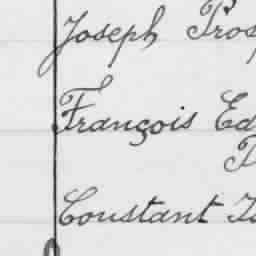 Joseph Pros
François Ed
Constant